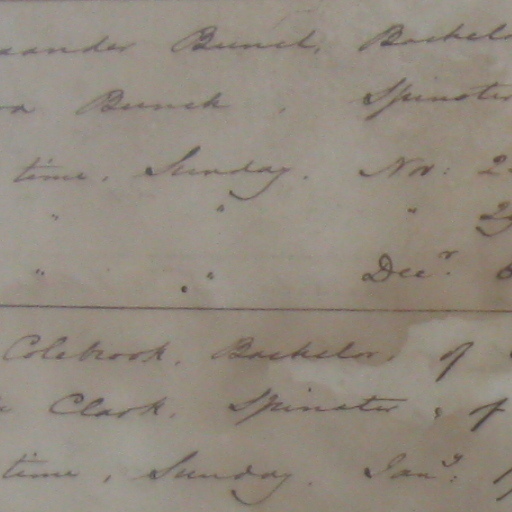 Bunch, Bachelo
Bunch, Spinster
time, Sunday. Nov: 2
" " " 29
" " Decr. 6
Colebrook, Bachelor, of
Clark, Spinster, of
time, Sunday. Jany: